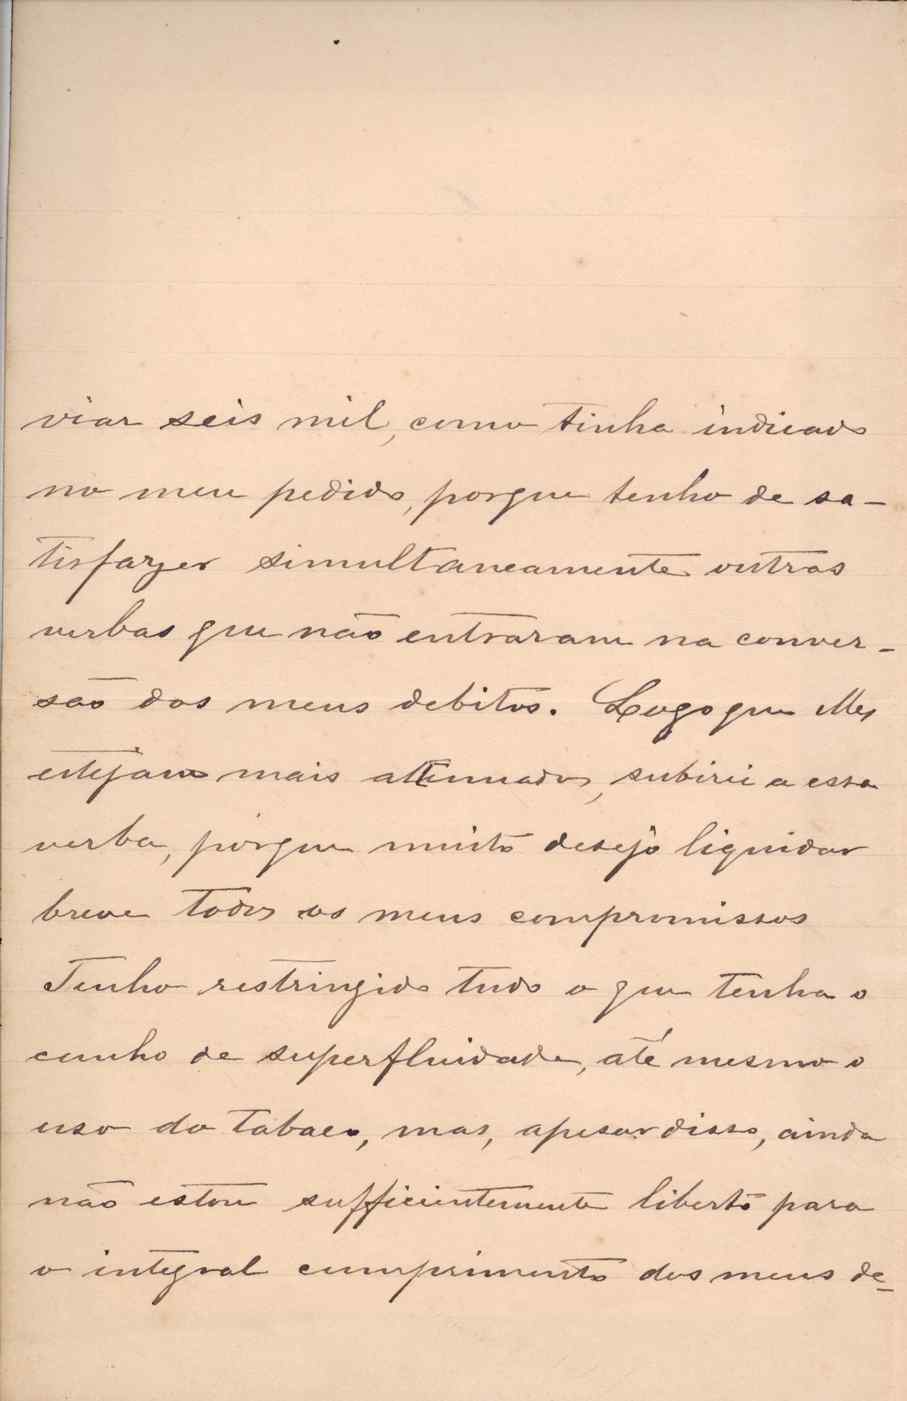 viar seis mil, como tinha indicado
no meu pedido, porque tenho de sa-
tisfazer simultaneamente outras
verbas que não entraram na conver-
são dos meus debitos. Logo que elles
estejam mais attenuados, subirei a essa
verba, porque muito desejo liquidar
breve todos os meus compromissos
Tenho restringido tudo o que tenha o
cunho de superfluidade, até mesmo o
uso do tabaco, mas, apesar disso, ainda
não estou sufficientemente liberto para
o integral cumprimento dos meus de-